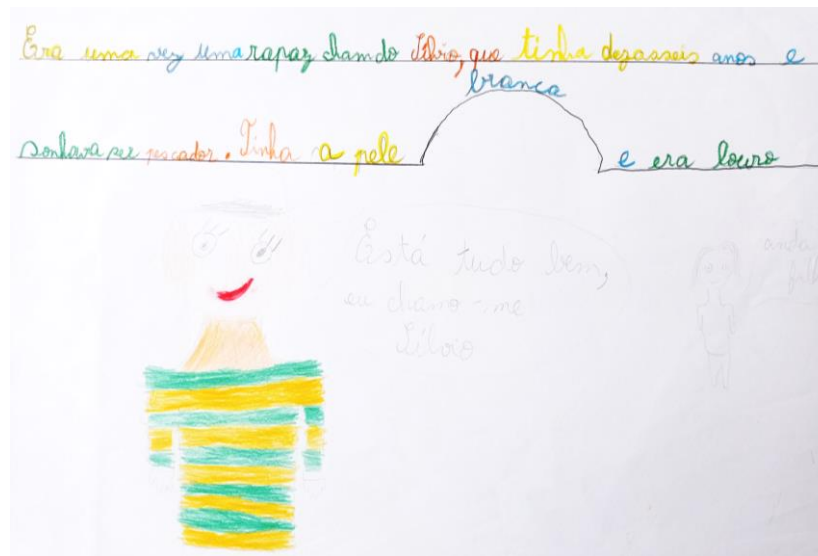 Era uma vez uma rapaz chamdo Sílvio, que tinha dezasseis anos e
branca
sonhava ser pescador. Tinha a pele e era louro
Está tudo bem,
eu chamo-me
Sílvio
anda